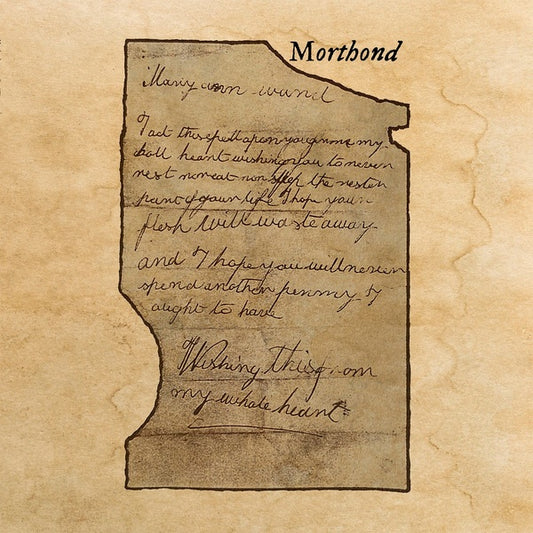 Morthond
Mary ann wand
I act this spell apon you from my
holl heart wishing you to never
rest nor eat nor sleep the resten
part of your life I hope your
flesh will waste away
and I hope you will never
spend another penny I
ought to have
Wishing this from
my whole heart